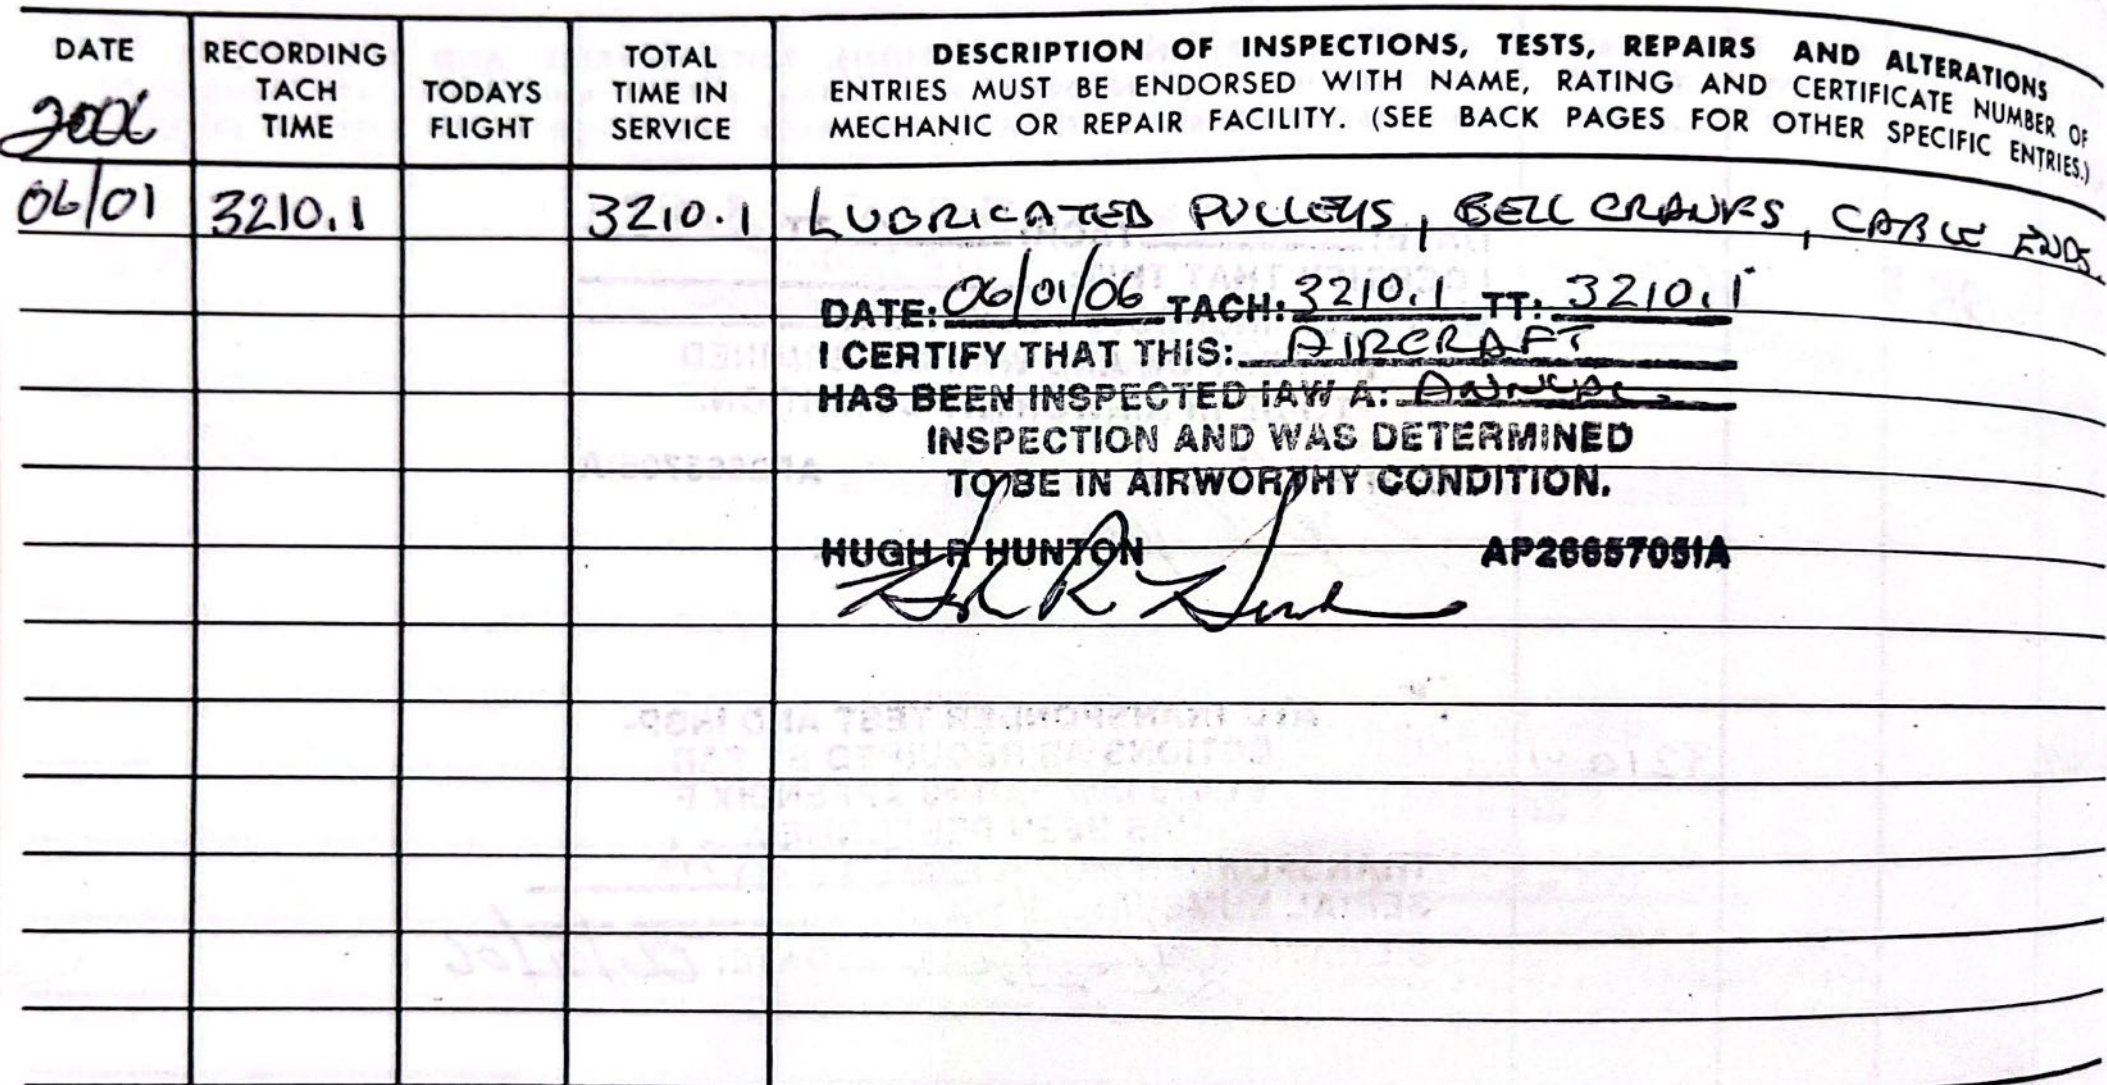 DATE
2006
RECORDING
TACH
TIME
TODAYS
FLIGHT
TOTAL
TIME IN
SERVICE
DESCRIPTION OF INSPECTIONS, TESTS, REPAIRS AND ALTERATIONS
ENTRIES MUST BE ENDORSED WITH NAME, RATING AND CERTIFICATE NUMBER OF
MECHANIC OR REPAIR FACILITY. (SEE BACK PAGES FOR OTHER SPECIFIC ENTRIES.)
06/01 3210.1 3210.1 LUBRICATED PULLEYS, BELL CRANKS, CABLE ENDS.
DATE: 06/01/06 TACH: 3210.1 TT: 3210.1
I CERTIFY THAT THIS: AIRCRAFT
HAS BEEN INSPECTED IAW A: ANNUAL
INSPECTION AND WAS DETERMINED
TO BE IN AIRWORTHY CONDITION.
HUGH R HUNTON AP26657051A